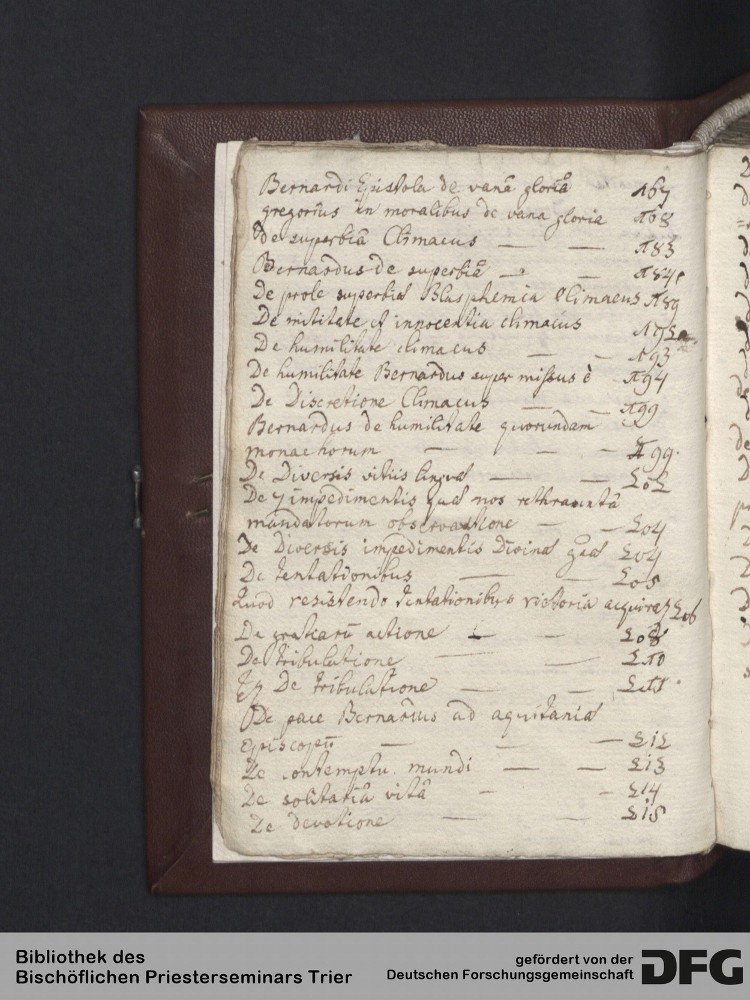 Bernardi Epistola de vanâ gloriâ 167
gregorius in moralibus de vana gloria 168
De superbiâ Climacus — — 183
Bernardus de superbiâ — — 184
De prole superbiæ Blasphemia Climacus 189
De mititate et innocentia climacus 192
De humilitate climacus — — 193
De humilitate Bernardus super missus è 194
De Discretione Climacus — — 199
Bernardus de humilitate quorundam
monachorum — — — 199.
De Diversis vitiis linguæ — — 202
De 7 impedimentis quæ nos rethrahunt â
mandatorum observatione — — 204
De Diversis impedimentis Divinæ gæ 204
De tentationibus — — 205
Quod resistendo tentationibus victoria acquiraꝶ 206
De gratiarū actione — — 208
De tribulatione — — 210
De tribulatione — — 211
De pace Bernardus ad aquitaniæ
episcopū — — — 212
De contemptu mundi — — 213
De solitariâ vitâ — — 214
De devotione — — 215
Bibliothek des
Bischöflichen Priesterseminars Trier
gefördert von der
Deutschen Forschungsgemeinschaft
DFG